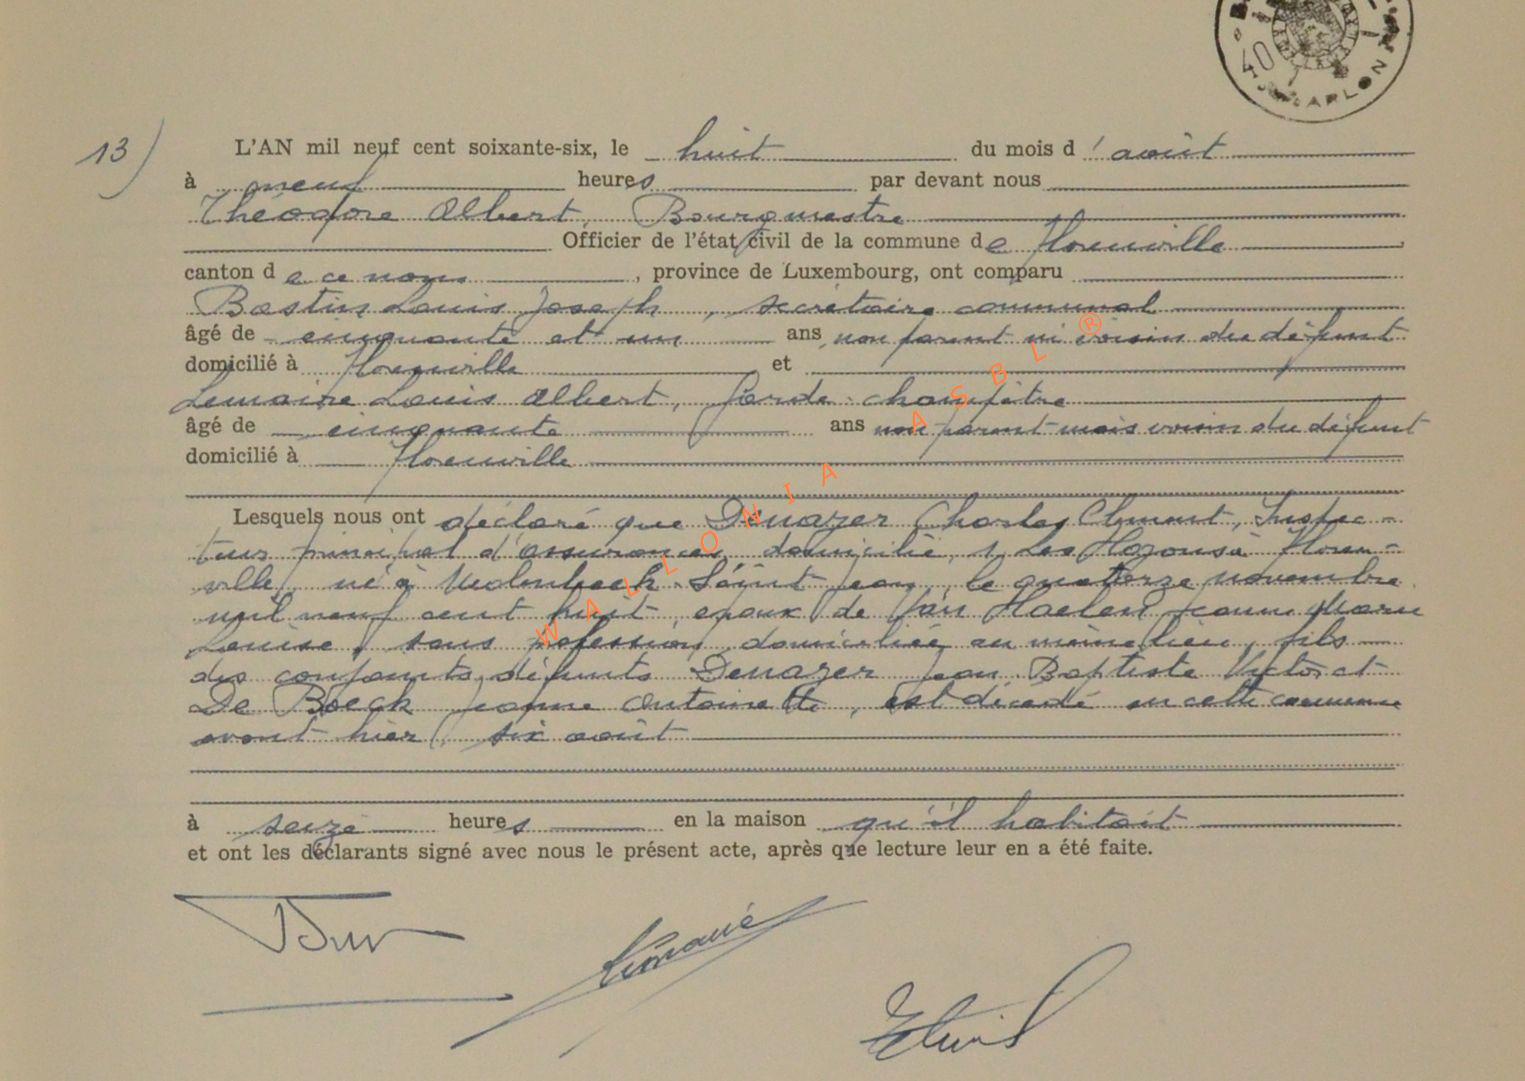 ARLON
40
13)
L'AN mil neuf cent soixante-six, le huit du mois d'août
à neuf heures par devant nous
Théodore Albert, Bourgmestre
Officier de l'état civil de la commune de Florenville
canton de ce nom, province de Luxembourg, ont comparu
Bastin Louis Joseph, secrétaire communal
âgé de cinquante et un ans non parent ni voisin du défunt
domicilié à Florenville et
Lemaire Louis Albert, garde-champêtre
âgé de cinquante ans non parent mais voisin du défunt
domicilié à Florenville
Lesquels nous ont déclaré que Denayer Charles Clément, Inspec-
teur principal d'assurances, domicilié, Les Hayons à Floren-
ville, né à Molenbeek-Saint Jean, le quatorze novembre
mil neuf cent huit, époux de Van Haelen Jeanne Marie
Louise, sans profession, domiciliée au même lieu, fils
des conjoints défunts Denayer Jean Baptiste Victor et
De Boeck Jeanne Antoinette, est décédé en cette commune
avant hier, six août
à seize heures en la maison qu'il habitait
et ont les déclarants signé avec nous le présent acte, après que lecture leur en a été faite.
WALLONIA ASBL ®